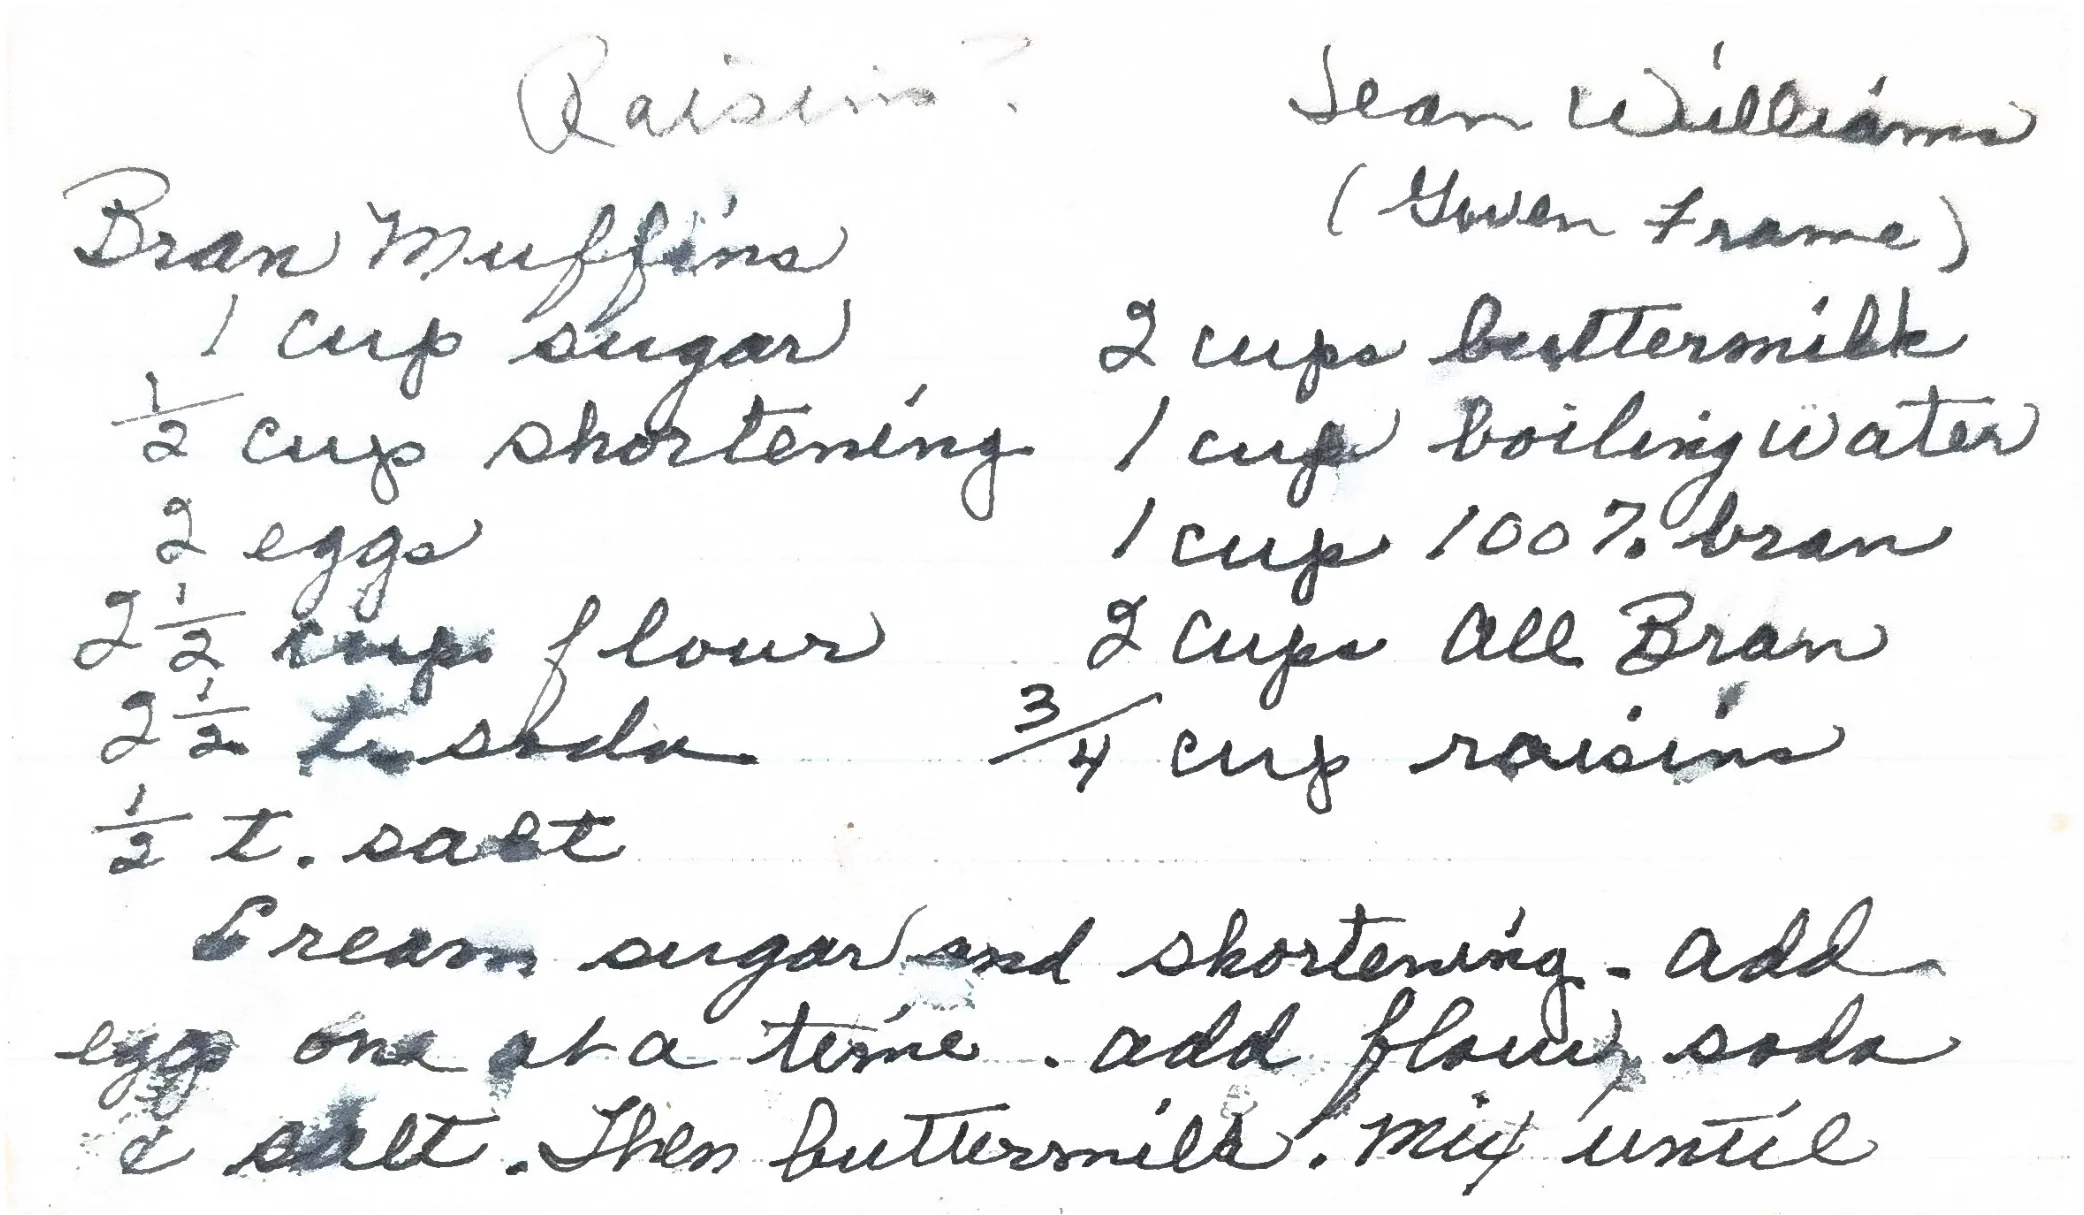 Raisins?
Jean Williams
(Gwen Frame)
Bran Muffins
1 cup sugar
1/2 cup shortening
2 eggs
2 1/2 cup flour
2 1/2 t. soda
1/2 t. salt
2 cups buttermilk
1 cup boiling water
1 cup 100% bran
2 cups All Bran
3/4 cup raisins
Cream sugar and shortening - add
eggs one at a time. add flour, soda
& salt. Then buttermilk. Mix until